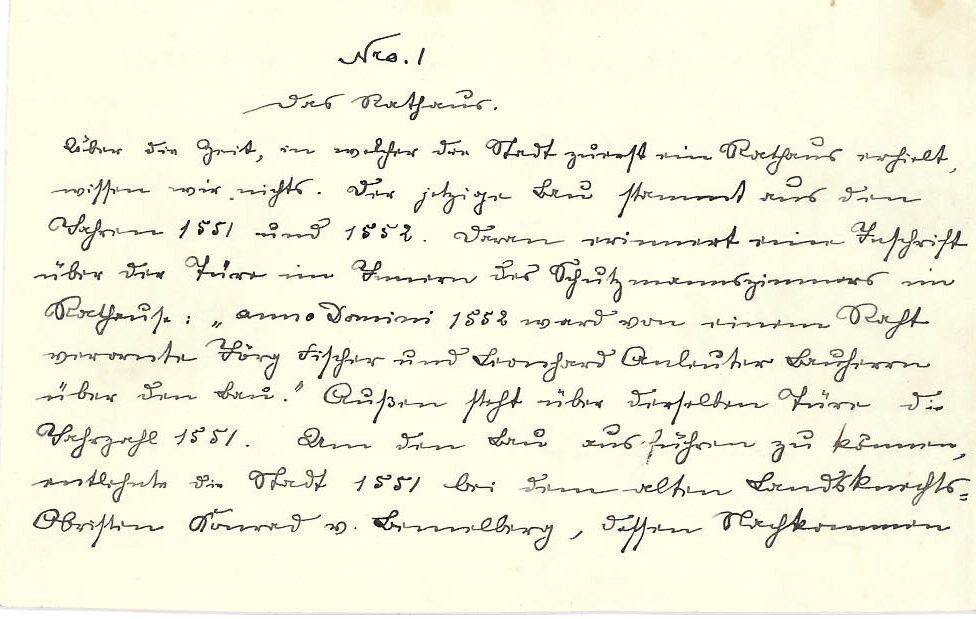 Nro. 1
Das Rathaus.
Über die Zeit, in welcher die Stadt zuerst ein Rathaus erhielt,
wissen wir nichts. Der jetzige Bau stammt aus den
Jahren 1551 und 1552. Daran erinnert eine Inschrift
über der Türe im Innern des Schutzmannszimmers im
Rathause: „anno Domini 1552 ward von einem Raht
verornte Jörg Fischer und Leonhard Anleuter Bauherrn
über den Bau.“ Außen steht über derselben Türe die
Jahrzahl 1551. Um den Bau ausführen zu können,
entlehnte die Stadt 1551 bei dem alten Landsknechts=
Obristen Konrad v. Bemelberg, dessen Nachkommen